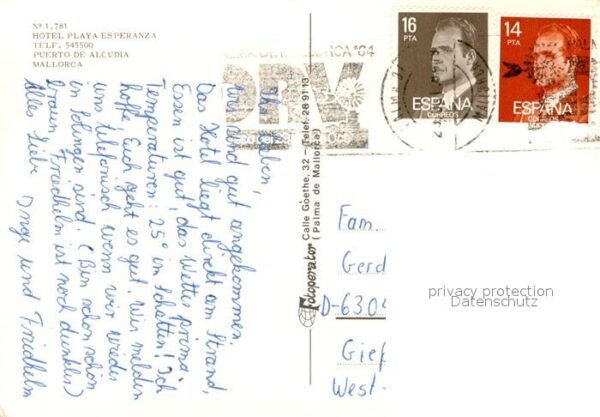 Nº 1.781
HOTEL PLAYA ESPERANZA
TELF. 545500
PUERTO DE ALCUDIA
MALLORCA
Ihr Lieben,
wir sind gut angekommen.
Das Hotel liegt direkt am Strand,
Essen ist gut, das Wetter prima.
Temperaturen: 25° im Schatten! Ich
hoffe Euch geht es gut. Wir melden
uns telefonisch wenn wir wieder
in Solingen sind. (Bin schon schön
braun, Friedhelm ist noch dunkler)
Alles Liebe Inge und Friedhelm
Fotoperator Calle Goethe, 32 - Telef. 28 91 13
(Palma de Mallorca)
'84
DRV
16
PTA
ESPAÑA
CORREOS
14
PTA
ESPAÑA
CORREOS
Fam.
Gerd
D-6304
Gieß
West-
privacy protection
Datenschutz